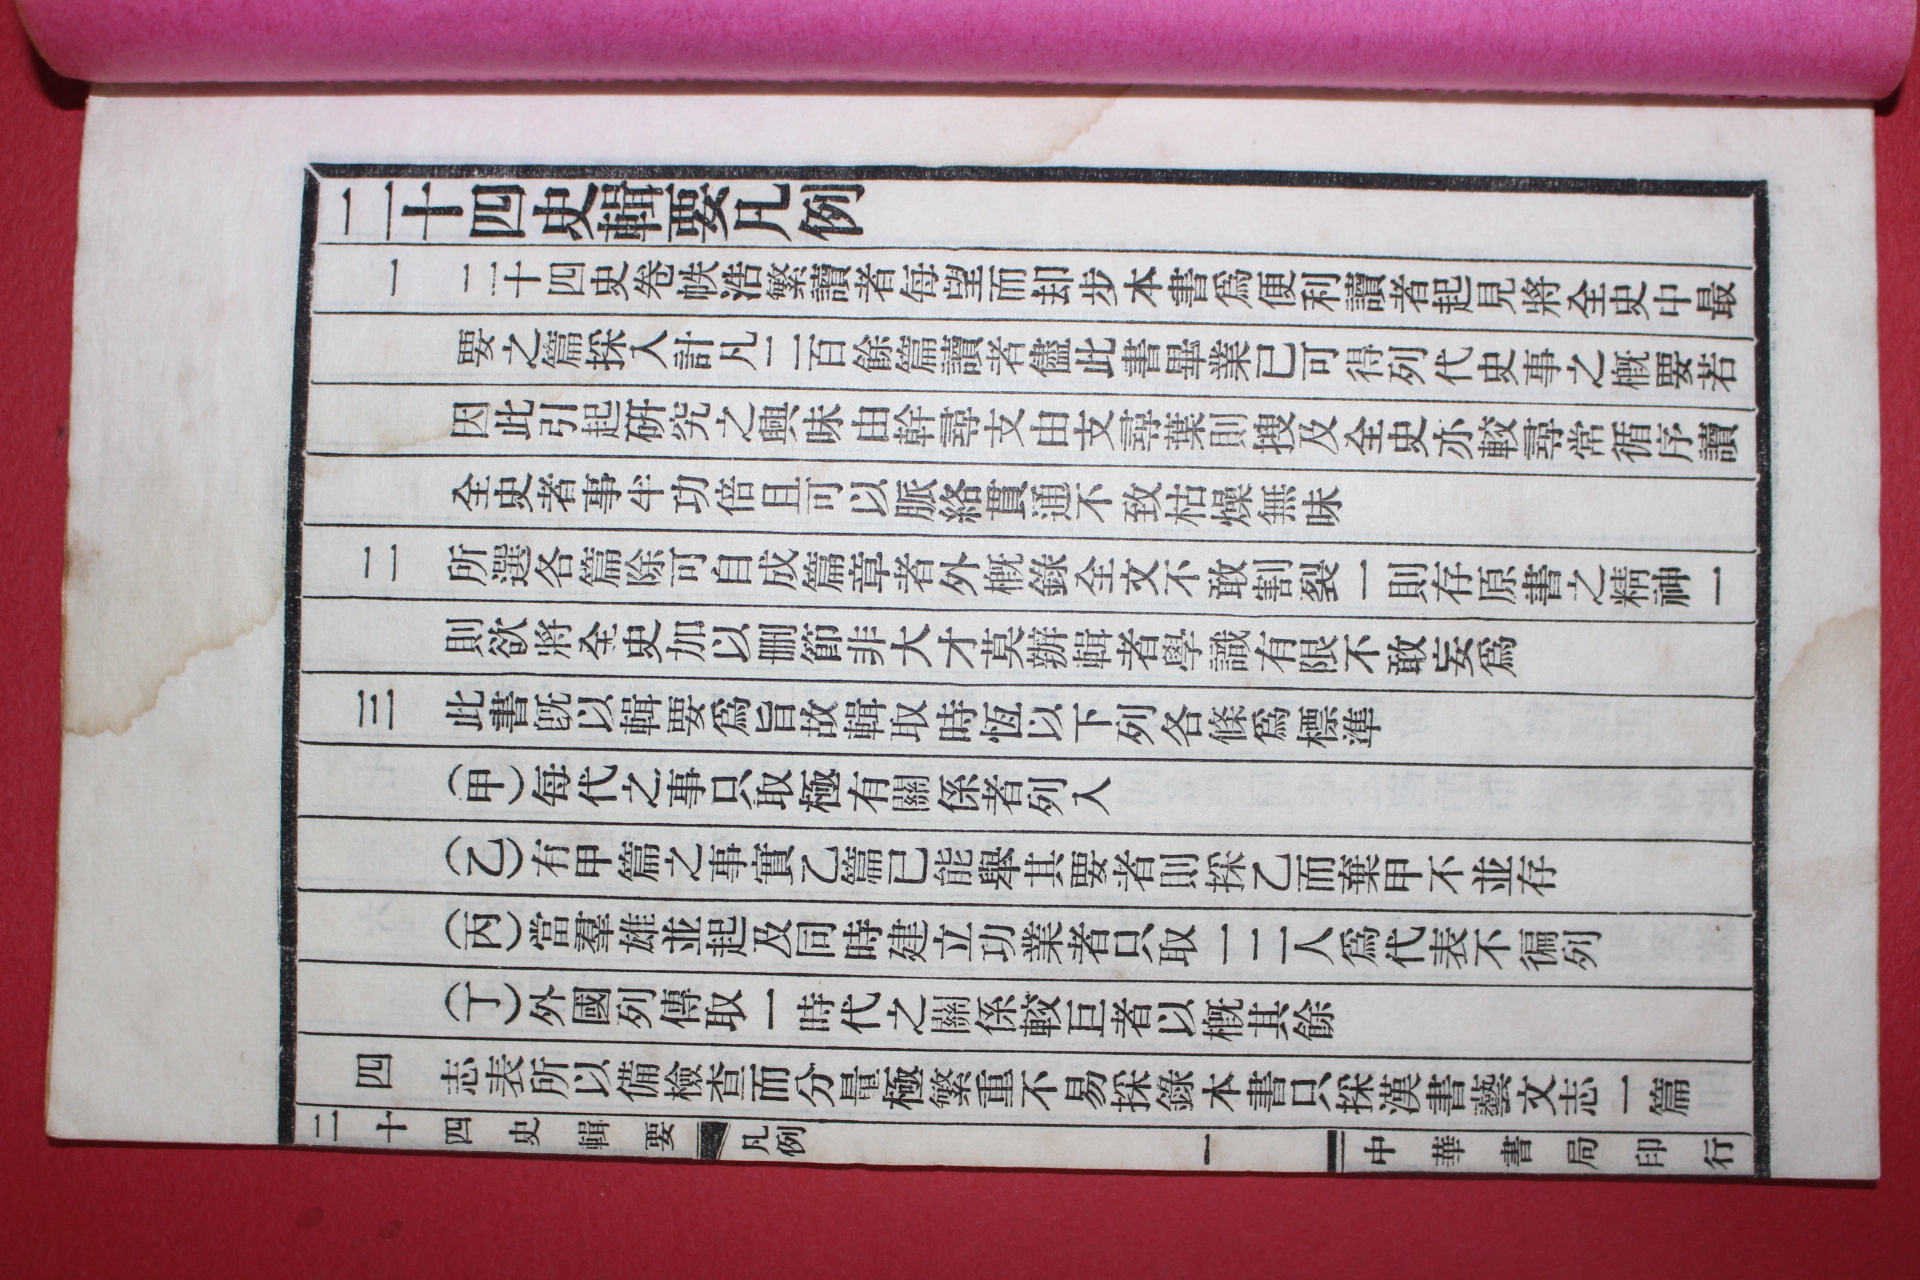 二十四史輯要凡例
一　二十四史卷帙浩繁讀者每望而却步本書爲便利讀者起見將全史中最
要之篇採入計凡二百餘篇讀者儘此書畢業已可得列代史事之概要若
因此引起研究之興味由幹尋支由支尋葉則搜及全史亦較尋常循序讀
全史者事半功倍且可以脈絡貫通不致枯燥無味
二　所選各篇除可自成篇章者外概錄全文不敢割裂一則存原書之精神一
則欲將全史加以删節非大才莫辦輯者學識有限不敢妄爲
三　此書旣以輯要爲旨故輯取時恆以下列各條爲標準
（甲）每代之事只取極有關係者列入
（乙）有甲篇之事實乙篇已能舉其要者則採乙而棄甲不並存
（丙）當羣雄並起及同時建立功業者只取一二人爲代表不徧列
（丁）外國列傳取一時代之關係較巨者以概其餘
四　志表所以備檢查而分量極繁重不易採錄本書只採漢書藝文志一篇
二十四史輯要　凡例　一　中華書局印行